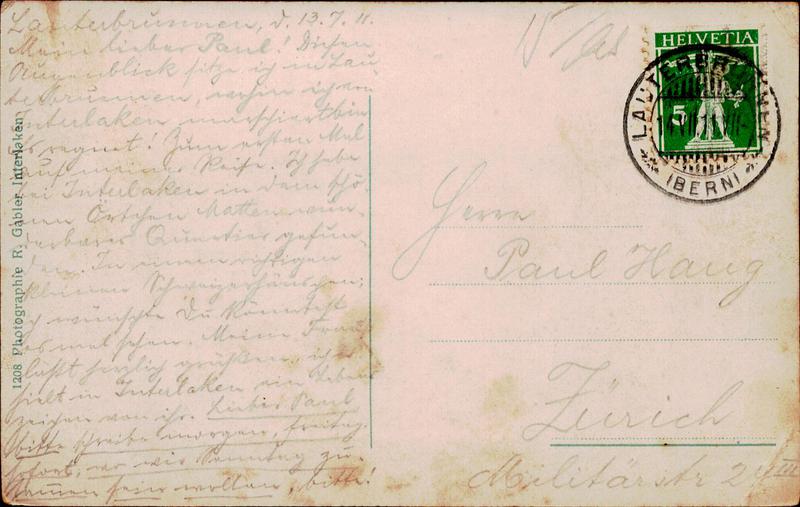 Lauterbrunnen, d. 13.7.11.
Mein lieber Paul! Diesen
Augenblick sitze ich in Lau-
terbrunnen, wohin ich von
Interlaken marschiert bin
Es regnet! Zum ersten Mal
auf meiner Reise. Ich habe
bei Interlaken in dem schö-
nen Örtchen Matten wun-
derbares Quartier gefun-
den. In einem richtigen
kleinen Schweizerhäuschen;
ich wünschte Du könntest
es mal sehen. Meine Frau
läßt herzlich grüßen, ich er-
hielt in Interlaken ein Lebens
zeichen von ihr. Lieber Paul
bitte schreibe morgen, freitag
sofort, wo wir Sonntag zu-
sammen sein wollen, bitte!
1208 Photographie R. Gabler Interlaken
HELVETIA
5
LAUTERBRUNNEN
(BERN)
Herrn
Paul Haug
Zürich
Militärstr